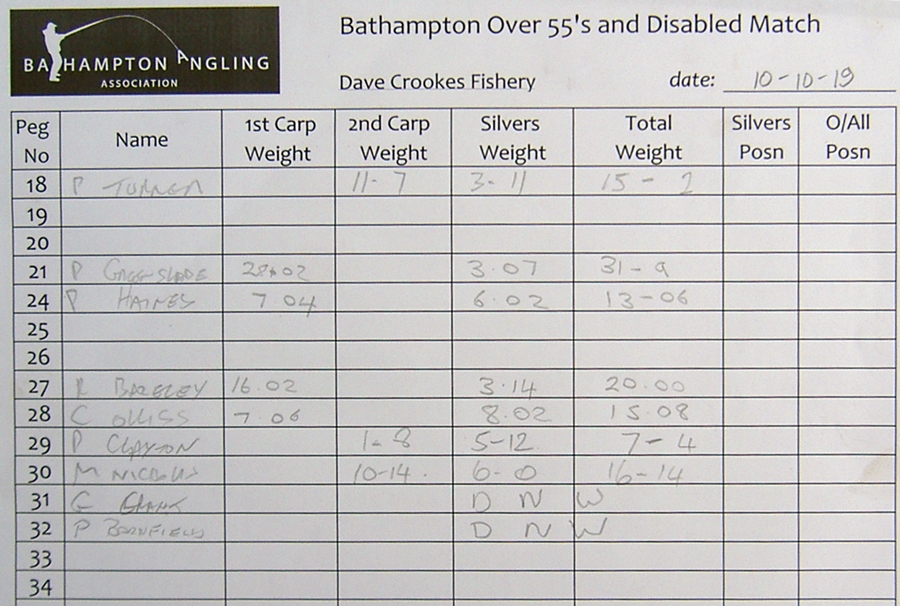 BATHAMPTON ANGLING
ASSOCIATION
Bathampton Over 55's and Disabled Match
Dave Crookes Fishery date: 10-10-19
Peg No Name 1st Carp Weight 2nd Carp Weight Silvers Weight Total Weight Silvers Posn O/All Posn
18 P TURNER 11-7 3-11 15-2
19
20
21 P 28.02 3.07 31-9
24 P HAINES 7.04 6.02 13-06
25
26
27 16.02 3.14 20.00
28 C OLLISS 7.06 8.02 15.08
29 P CLAYTON 1-8 5-12 7-4
30 M 10-14. 6-0 16-14
31 G D N W
32 P D N W
33
34